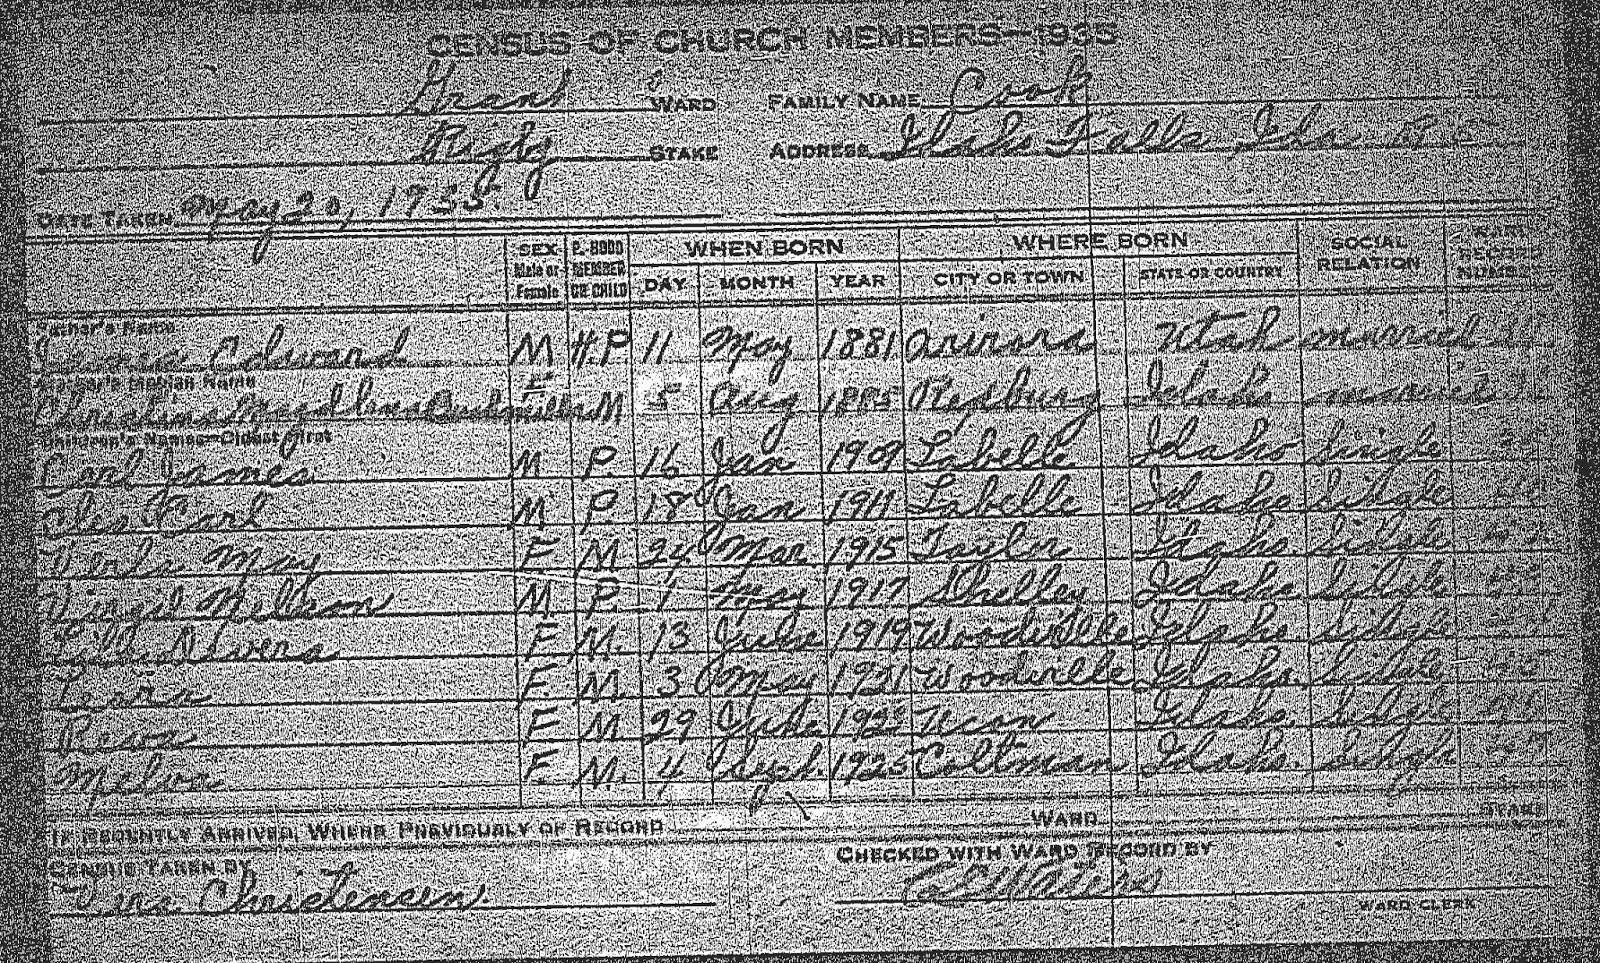 CENSUS OF CHURCH MEMBERS—1935
Grant WARD FAMILY NAME Cook
Rigby STAKE ADDRESS Idaho Falls Ida
DATE TAKEN May 20, 1935.
SEX Male or Female P.-HOOD MEMBER OR CHILD WHEN BORN WHERE BORN SOCIAL RELATION WARD RECORD NUMBER
DAY MONTH YEAR CITY OR TOWN STATE OR COUNTRY
Father's Name
Edward M H.P 11 May 1881 Utah married
Mother's Maiden Name
F
M. 5 Aug 1885 Rexburg Idaho
Children's Names—Oldest First
Earl James M P. 16 Jan 1909 Labelle Idaho Single
Carl M P. 18 Jan 1911 Labelle Idaho Single
May F M 24 Mar. 1915 Taylor Idaho. Single
Virgil Nelson M P 1 May 1917 Shelley Idaho Single
F. M. 13 June 1919 Woodville Idaho Single
F. M. 3 May 1921 Woodville Idaho. Single
Reva F M 29 June Ucon Idaho. Single
Melva F. M. 4 Sept. 1925 Coltman Idaho. Single
IF RECENTLY ARRIVED, WHERE PREVIOUSLY OF RECORD WARD STAKE
CENSUS TAKEN BY CHECKED WITH WARD RECORD BY
Christensen.
WARD CLERK